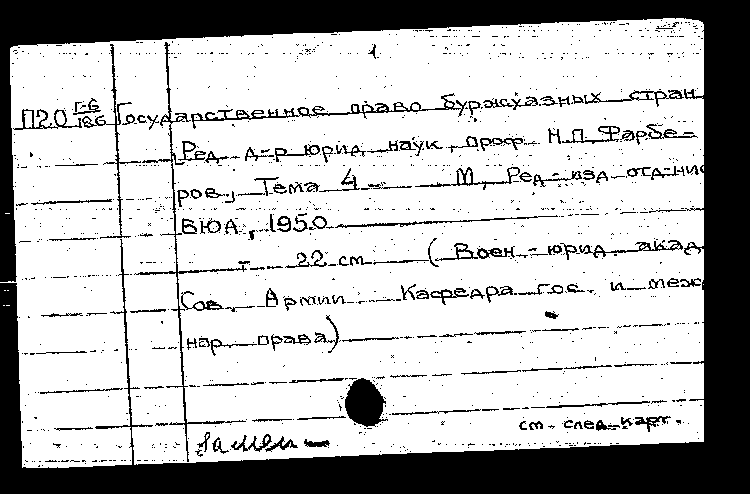 1
П2.0 Г-6/186 Государственное право буржуазных стран
Ред. д-р юрид. наук, проф. Н.П. Фарбе-
ров., Тема 4 - М, Ред-изд отд-ние
ВЮА, 1950
- 22 cm (Воен-юрид. акад.
Сов. Армии. Кафедра гос. и меж
нар. права)
см. след. карт.